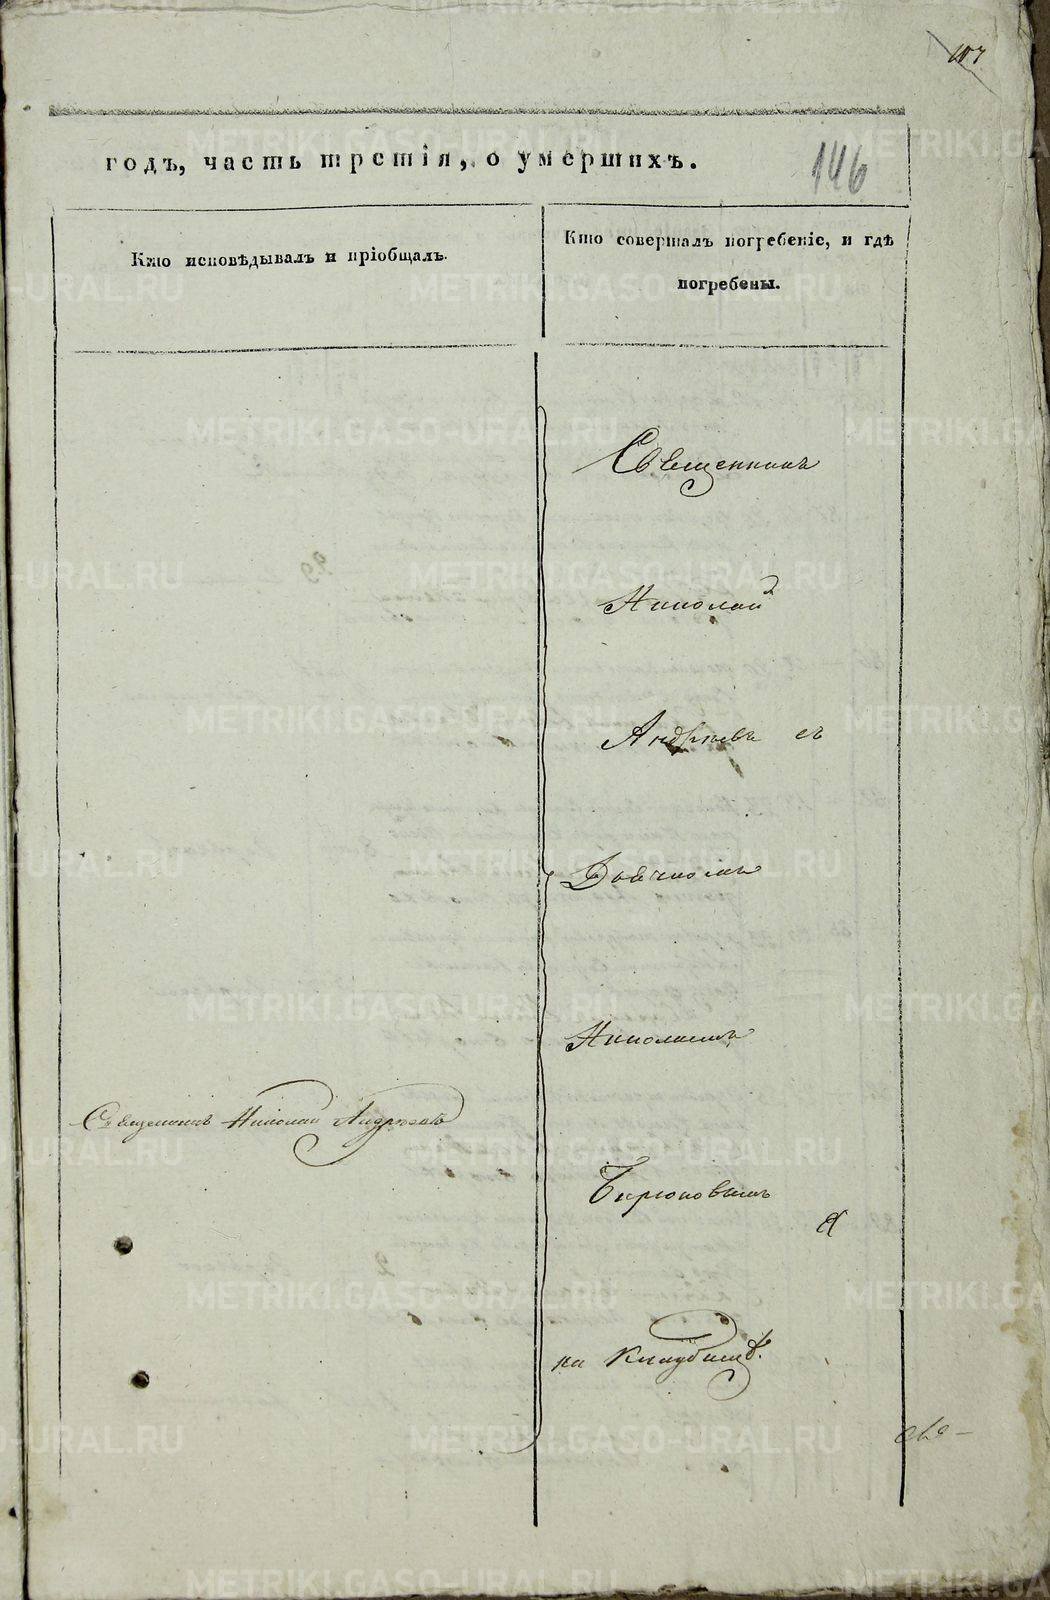 146
годъ, часть третія, о умершихъ.
Кто исповѣдывалъ и пріобщалъ.
Кто совершалъ погребеніе, и гдѣ
погребены.
Священникъ
Николай
Андреевъ съ
Дьячкомъ
Николаемъ
Священникъ Николай Андреевъ
Бирюковымъ
на Кладбищѣ.
METRIKI.GASO-URAL.RU